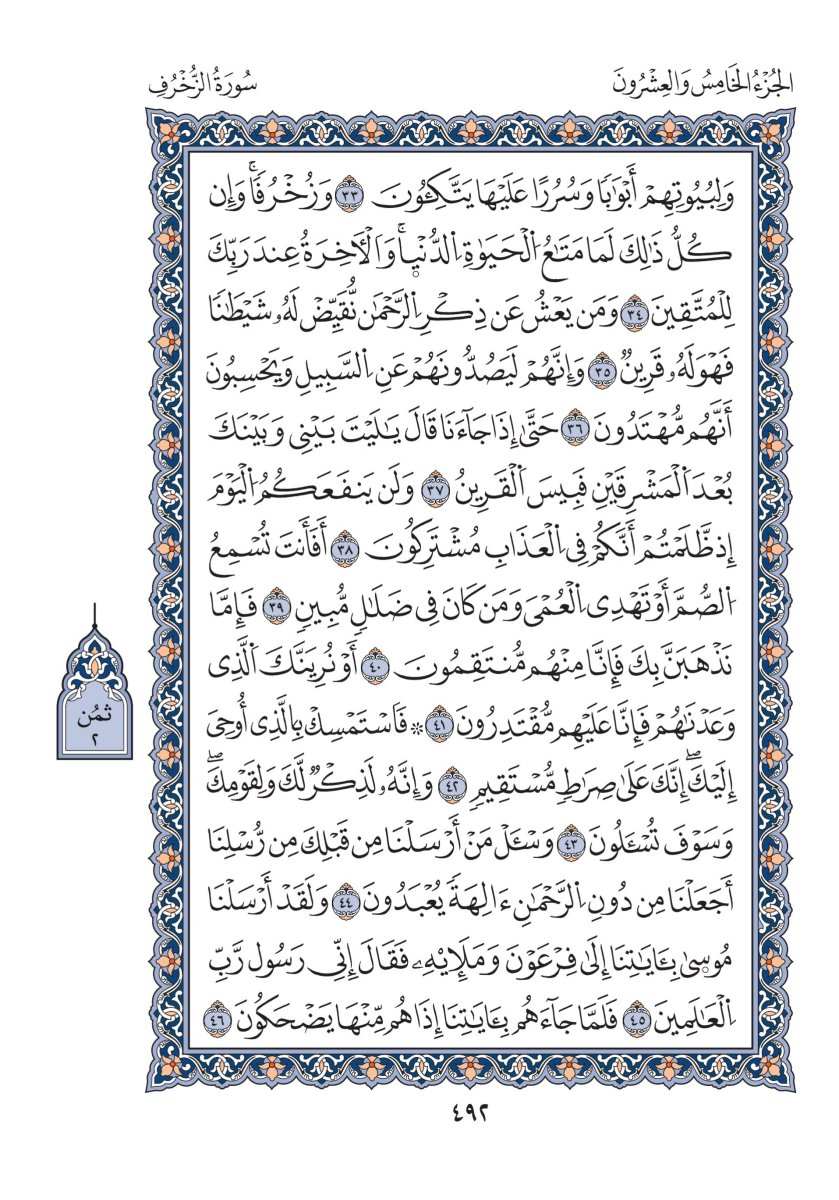 الجُزْءُ الخَامِسُ وَالعِشْرُونَ
سُورَةُ الزُّخْرُفِ
وَلِبُيُوتِهِمْ أَبْوَٰبًا وَسُرُرًا عَلَيْهَا يَتَّكِـُٔونَ ٣٣ وَزُخْرُفًاۚ وَإِن
كُلُّ ذَٰلِكَ لَمَا مَتَٰعُ اُ۬لْحَيَوٰةِ اِ۬لدُّنْيۭاۚ وَالْأَخِرَةُ عِندَ رَبِّكَ
لِلْمُتَّقِينَ ٣٤ وَمَن يَعْشُ عَن ذِكْرِ اِ۬لرَّحْمَٰن نُّقَيِّضْ لَهُۥ شَيْطَٰنًا
فَهْوَ لَهُۥ قَرِينٌ ٣٥ وَإِنَّهُمْ لَيَصُدُّونَهُمْ عَنِ اِ۬لسَّبِيلِ وَيَحْسِبُونَ
أَنَّهُم مُّهْتَدُونَ ٣٦ حَتَّىٰ إِذَا جَآءَنَا قَالَ يَٰلَيْتَ بَيْنِي وَبَيْنَكَ
بُعْدَ اَ۬لْمَشْرِقَيْنِ فَبِيسَ اَ۬لْقَرِينُ ٣٧ وَلَن يَنفَعَكُمُ اُ۬لْيَوْمَ
إِذ ظَّلَمْتُمْ أَنَّكُمْ فِي اِ۬لْعَذَابِ مُشْتَرِكُونَ ٣٨ أَفَأَنتَ تُسْمِعُ
اُ۬لصُّمَّ أَوْ تَهْدِي اِ۬لْعُمْيَ وَمَن كَانَ فِي ضَلَٰلٍ مُّبِينٍ ٣٩ فَإِمَّا
نَذْهَبَنَّ بِكَ فَإِنَّا مِنْهُم مُّنتَقِمُونَ ٤٠ أَوْ نُرِيَنَّكَ اَ۬لَّذِي
وَعَدْنَٰهُمْ فَإِنَّا عَلَيْهِم مُّقْتَدِرُونَ ٤١ ۞ فَاسْتَمْسِكْ بِالَّذِي أُوحِيَ
إِلَيْكَۖ إِنَّكَ عَلَىٰ صِرَٰطٍ مُّسْتَقِيمٍ ٤٢ وَإِنَّهُۥ لَذِكْرٌ لَّكَ وَلِقَوْمِكَۖ
وَسَوْفَ تُسْـَٔلُونَ ٤٣ وَسْـَٔلْ مَنْ أَرْسَلْنَا مِن قَبْلِكَ مِن رُّسْلِنَا
أَجَعَلْنَا مِن دُونِ اِ۬لرَّحْمَٰنِ ءَالِهَةً يُعْبَدُونَ ٤٤ وَلَقَدْ أَرْسَلْنَا
مُوسۭىٰ بِـَٔايَٰتِنَا إِلَىٰ فِرْعَوْنَ وَمَلَإِيْهِۦ فَقَالَ إِنِّي رَسُول رَّبِّ
اِ۬لْعَٰلَمِينَ ٤٥ فَلَمَّا جَآءَهُم بِـَٔايَٰتِنَا إِذَا هُم مِّنْهَا يَضْحَكُونَ ٤٦
ثُمُن
٢
٤٩٢